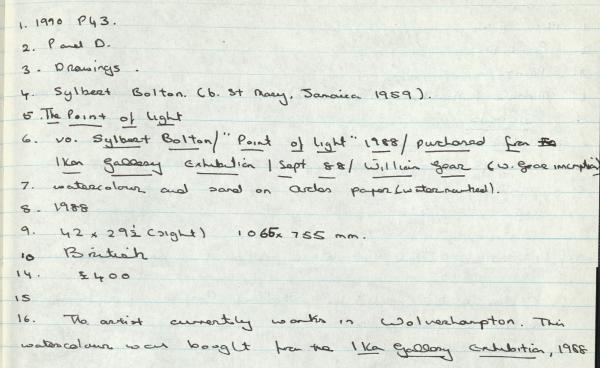 1. 1990 P43.
2. P and D.
3. Drawings.
4. Sylbert Bolton. (b. St Mary, Jamaica 1959).
5. The Point of light
6. vo. Sylbert Bolton/ "Point of light" 1988/ purchased from
Ikon Gallery Exhibition / Sept 88/ William Gear (W. Gear inscription)
7. watercolour and sand on Arches paper (watermarked).
8. 1988
9. 42 x 29½ (sight) 1065 x 755 mm.
10 British
14. £400
15
16. The artist currently works in Wolverhampton. This
watercolour was bought from the Ikon Gallery Exhibition, 1988